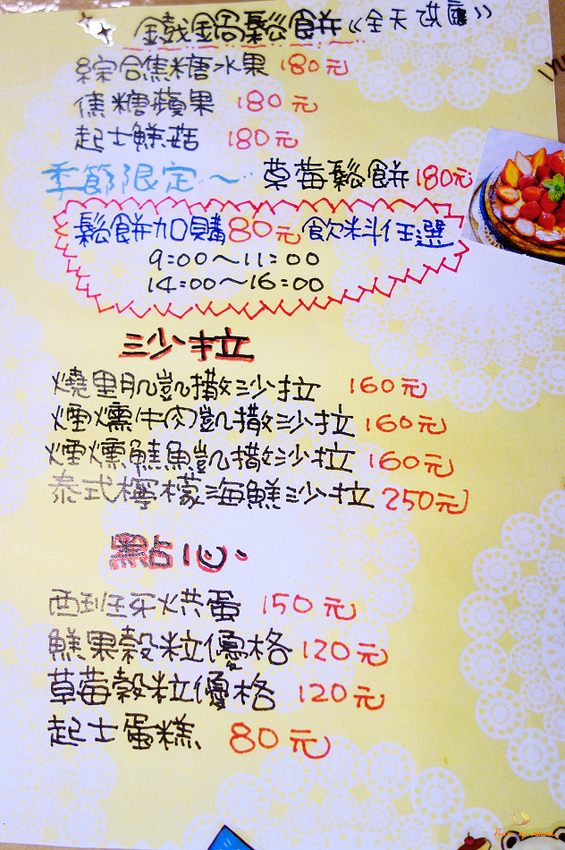 鐵鍋鬆餅《全天供應》
綜合焦糖水果 180元
焦糖蘋果 180元
起士鮮菇 180元
季節限定~ 草莓鬆餅180元
鬆餅加購80元飲料任選
9:00~11:00
14:00~16:00
沙拉
燒里肌凱撒沙拉 160元
煙燻牛肉凱撒沙拉 160元
煙燻鮭魚凱撒沙拉 160元
泰式檸檬海鮮沙拉 250元
點心
西班牙烘蛋 150元
鮮果穀粒優格 120元
草莓穀粒優格 120元
起士蛋糕 80元